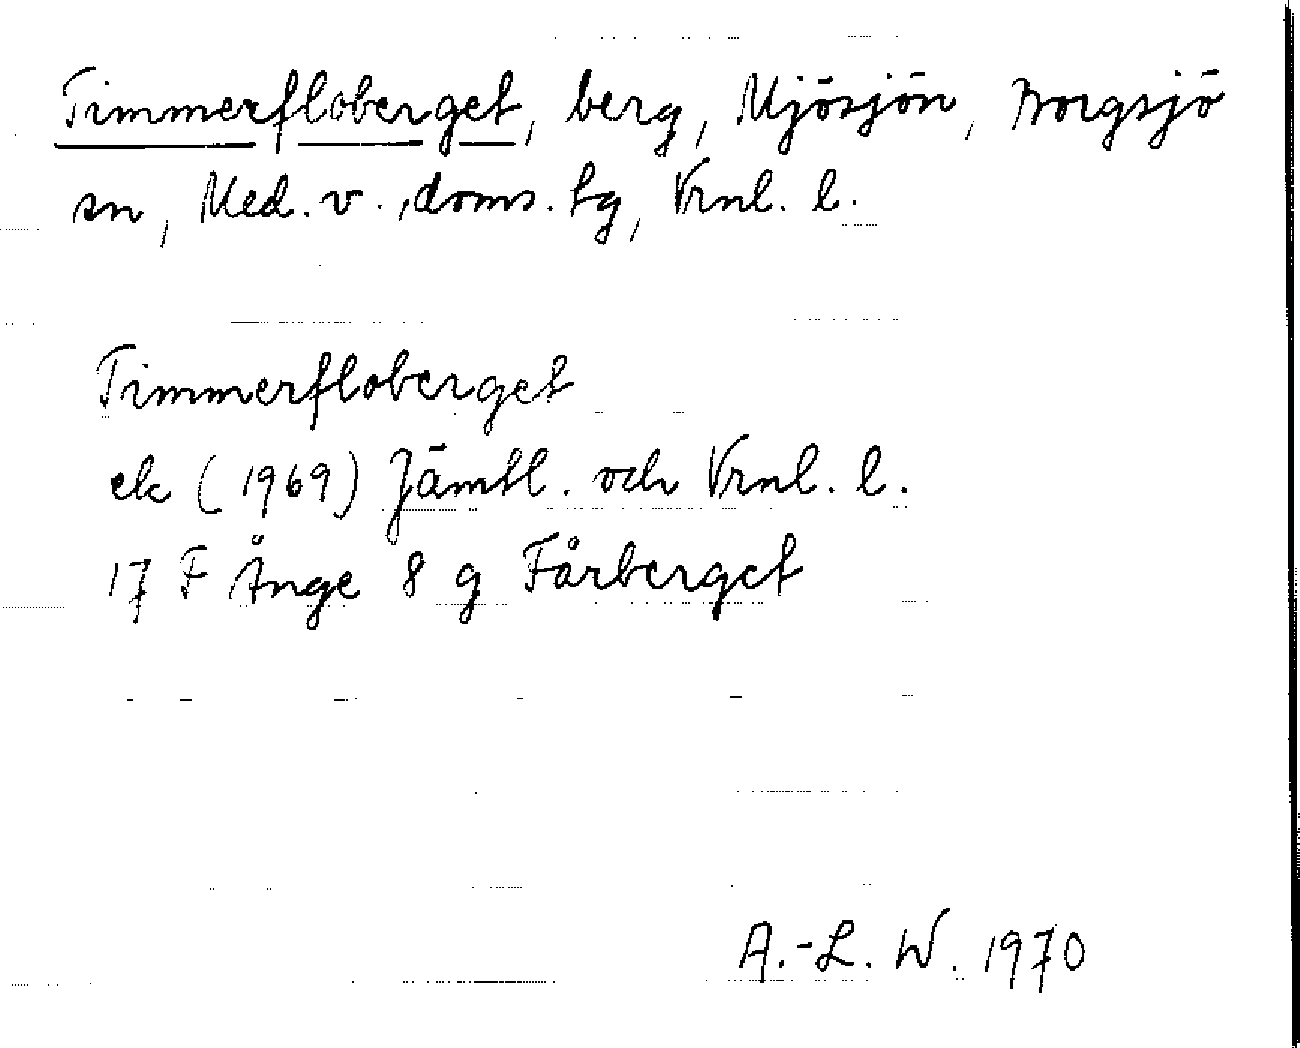 Timmerfloberget, berg, Mjösjön, Borgsjö
sn, Med. v., doms. tg, Vrnl. l.
Timmerfloberget
ek (1969) Jämtl. och Vrnl. l.
17 F Ånge 8 g Fårberget
A.-L. W. 1970